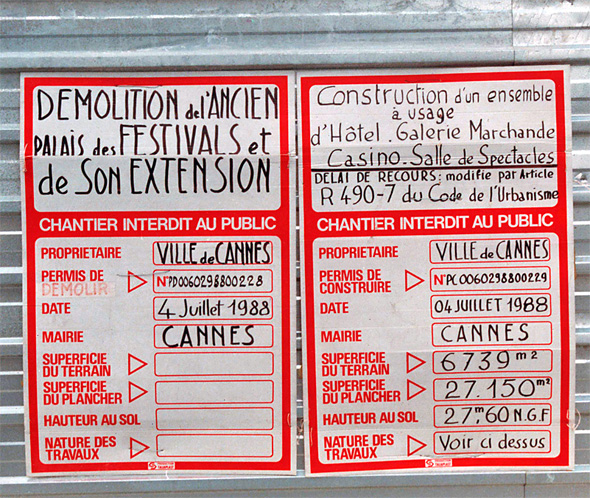 DEMOLITION de l'ANCIEN
PALAIS des FESTIVALS et
de Son EXTENSION
CHANTIER INTERDIT AU PUBLIC
PROPRIETAIRE VILLE de CANNES
PERMIS DE DEMOLIR N°PD0060298800228
DATE 4 Juillet 1988
MAIRIE CANNES
SUPERFICIE DU TERRAIN
SUPERFICIE DU PLANCHER
HAUTEUR AU SOL
NATURE DES TRAVAUX
Construction d'un ensemble
à usage
d'Hôtel. Galerie Marchande
Casino. Salle de Spectacles
DELAI DE RECOURS: modifie par Article
R 490-7 du Code de l'Urbanisme
CHANTIER INTERDIT AU PUBLIC
PROPRIETAIRE VILLE de CANNES
PERMIS DE CONSTRUIRE N°PC0060298800229
DATE 04 JUILLET 1988
MAIRIE CANNES
SUPERFICIE DU TERRAIN 6739 m²
SUPERFICIE DU PLANCHER 27.150 m²
HAUTEUR AU SOL 27,m60 N.G.F
NATURE DES TRAVAUX Voir ci dessus